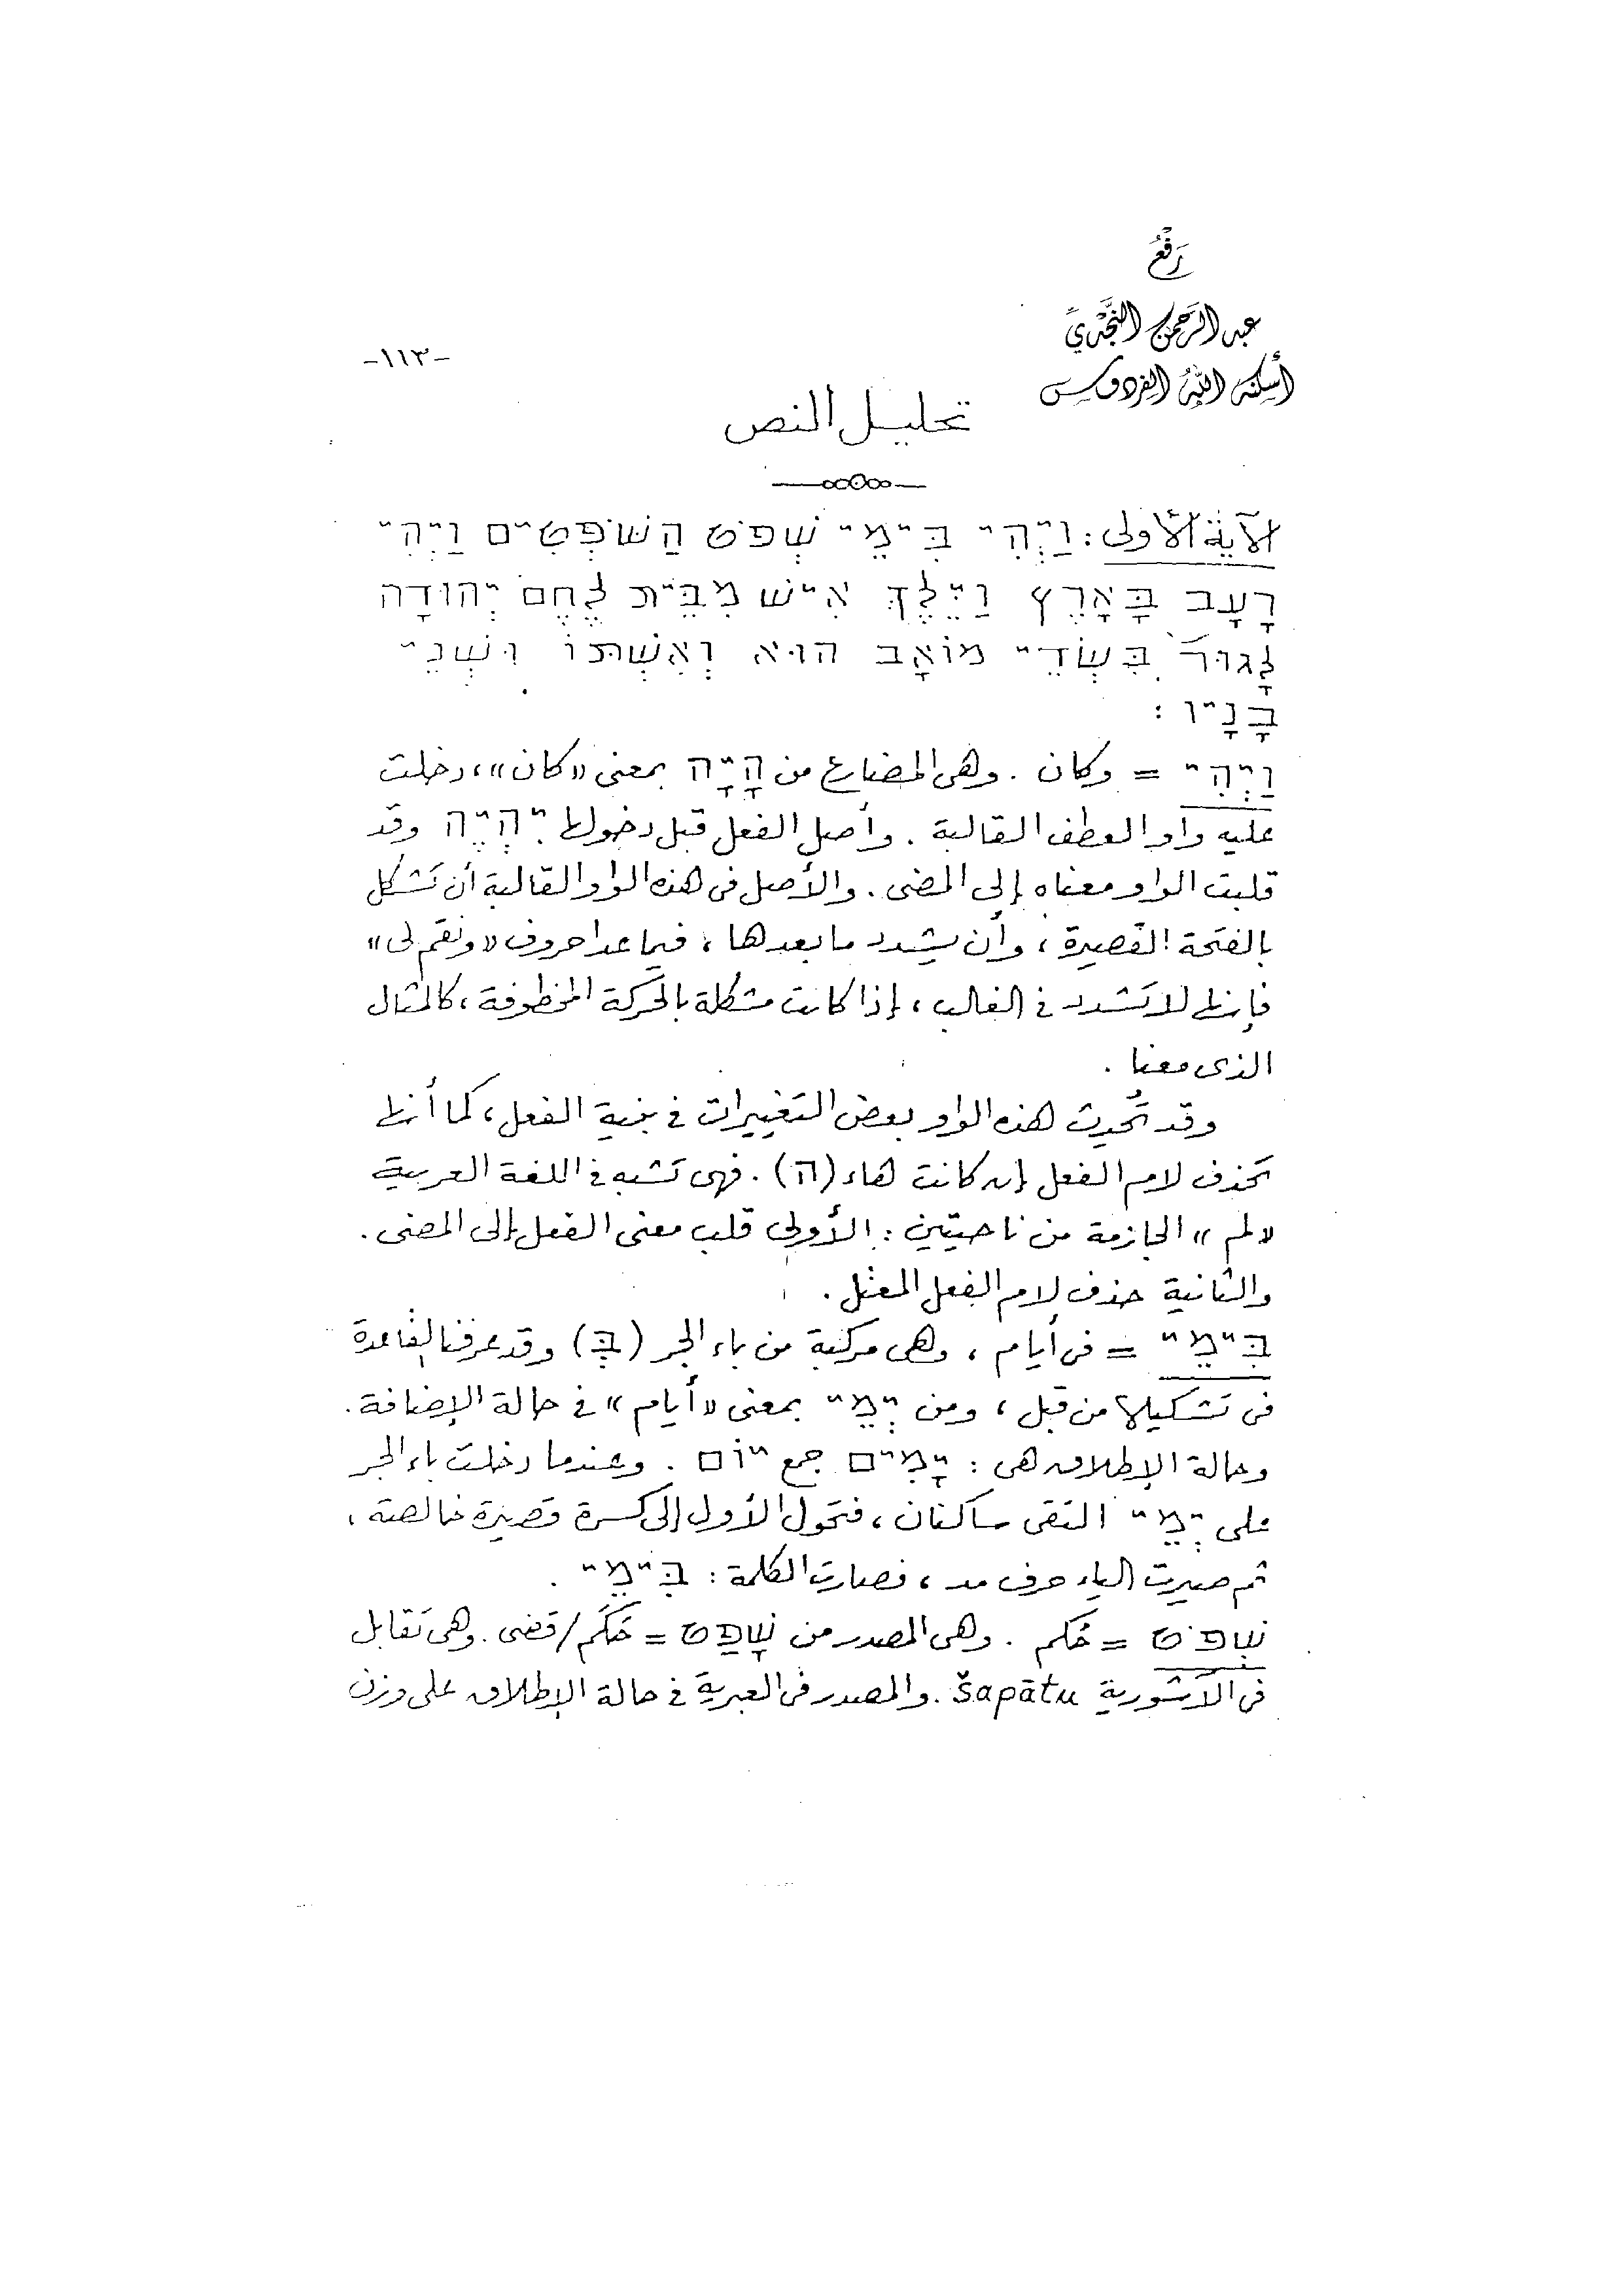 رَفْعُ
عبد الرحمن النجدي
أسكنه الله الفردوس
-١١٣-
تحليل النص
الآية الأولى : וַיְּהִי בִּימֵי שְׁפֹט הַשּׁפְטִים וַיְהִי
רָעָב בָּאָרֶץ וַיֵּלֶךְ אִישׁ מִבֵּית לֶחֶם יְהוּדָה
לָגוּר בִּשְׂדֵי מוֹאָב הוּא וְאִשְׁתּוֹ וּשְׁנֵי
בָּנָיו :
וַיְּהִי = وكان . وهى المضارع من הָיָה بمعنى «كان»، دخلت
عليه واو العطف القالبة . وأصل الفعل قبل دخولها יִהְיֶה وقد
قلبت الواو معناه إلى المضى . والأصل فى هذه الواو القالبة أن تَشكل
بالفتحة القصيرة ، وأن يشدد ما بعدها ، فيما عدا حروف «ونقم لى»
فإنها لا تشدد فى الغالب ، إذا كانت مشكلة بالحركة المخطوفة ، كالمثال
الذى معنا .
وقد تُحدِث هذه الواو بعض التغييرات فى بنية الفعل ، كما أنها
تحذف لام الفعل إن كانت هاء (ה) . فهى تشبه فى اللغة العربية
«لم» الجازمة من ناحيتين : الأولى قلب معنى الفعل إلى المضى .
والثانية حذف لام الفعل المعتل .
בִּימֵי = فى أيام ، وهى مركبة من باء الجر (בְּ) وقد عرفنا القاعدة
فى تشكيلها من قبل ، ومن יְמֵי بمعنى «أيام» فى حالة الإضافة .
وحالة الإطلاق هى : יָמִים جمع יוֹם . وعندما دخلت باء الجر
على יְמֵי التقى ساكنان ، فتحول الأول إلى كسرة قصيرة خالصة ،
ثم صيرت الياء حرف مد ، فصارت الكلمة : בִּימֵי .
שְׁפֹט = حُكم . وهى المصدر من שָׁפַט = حَكَم / قضى . وهى تَقابل
فى الآشورية šapātu . والمصدر فى العبرية فى حالة الإطلاق على وزن